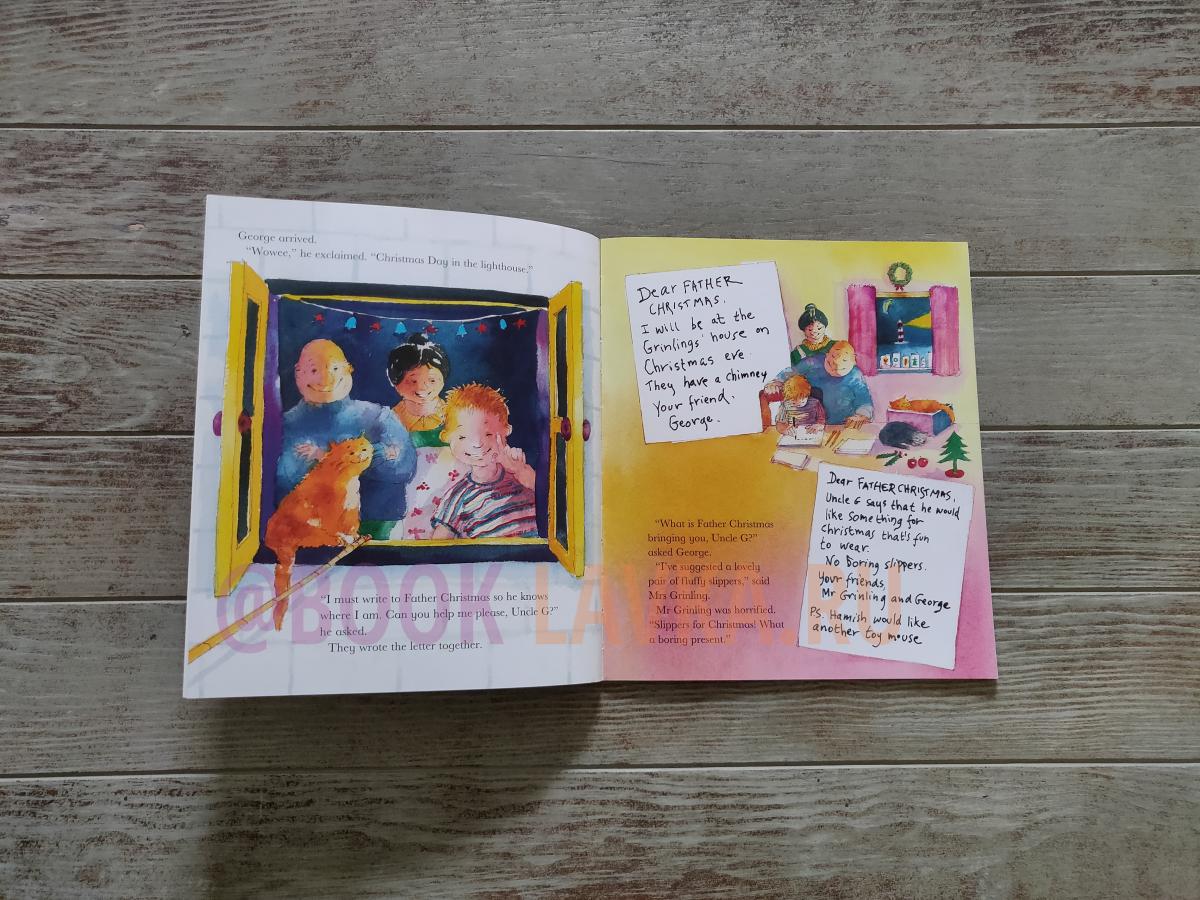 George arrived.
“Wowee,” he exclaimed. “Christmas Day in the lighthouse.”
“I must write to Father Christmas so he knows
where I am. Can you help me please, Uncle G?”
he asked.
They wrote the letter together.
Dear FATHER
CHRISTMAS.
I will be at the
Grinlings' house on
Christmas eve.
They have a chimney
Your friend.
George.
“What is Father Christmas
bringing you, Uncle G?”
asked George.
“I’ve suggested a lovely
pair of fluffy slippers,” said
Mrs Grinling.
Mr Grinling was horrified.
“Slippers for Christmas! What
a boring present.”
Dear FATHER CHRISTMAS,
Uncle G says that he would
like something for
Christmas that's fun
to wear.
No boring slippers.
Your friends,
Mr Grinling and George
PS. Hamish would like
another toy mouse
@BOOK LAVKA.RU